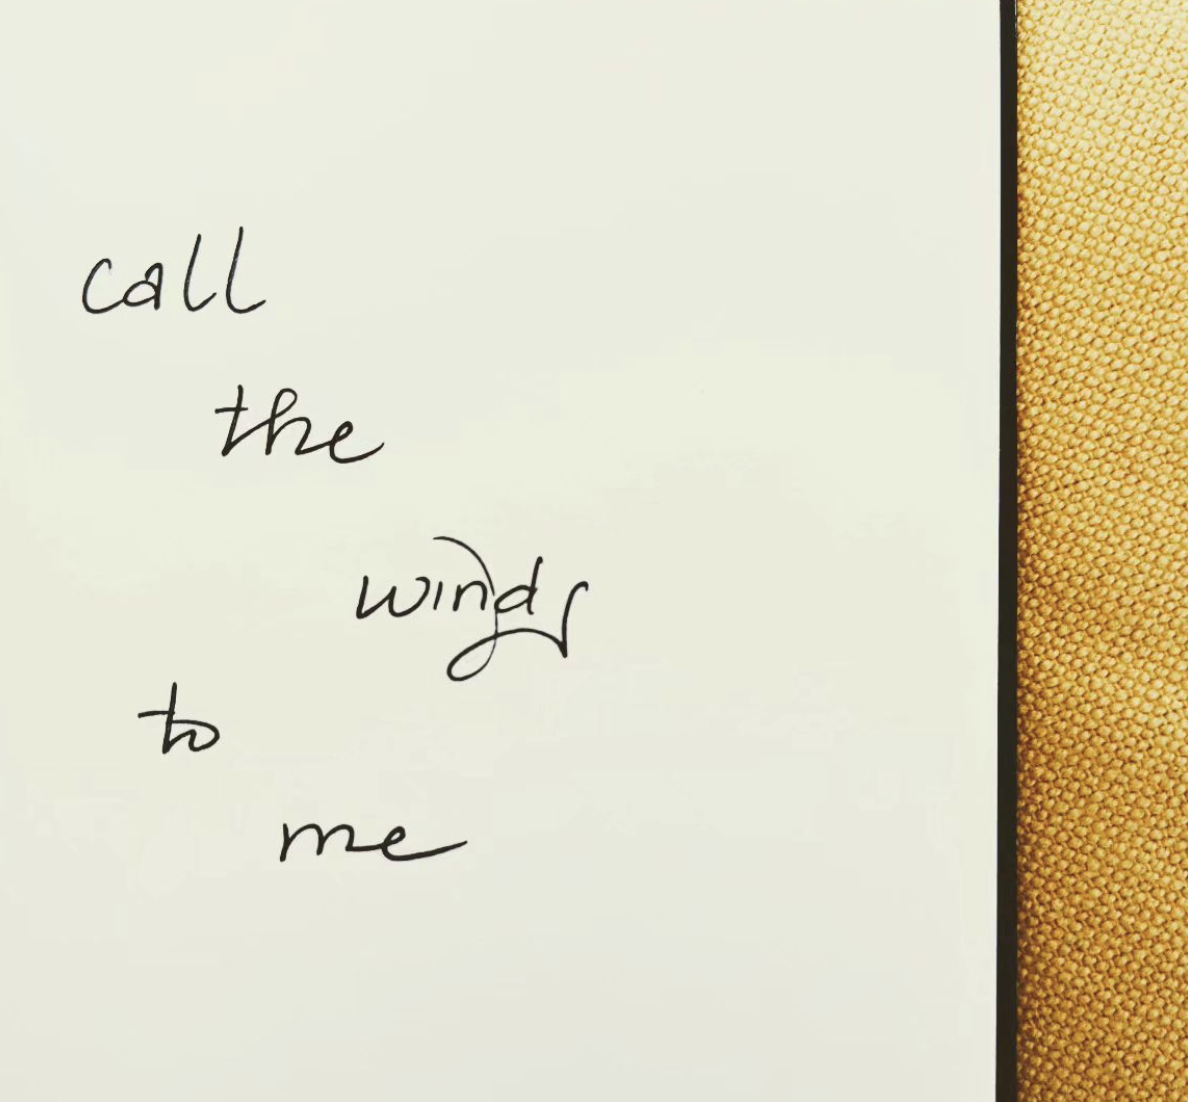 call
the
winds
to
me